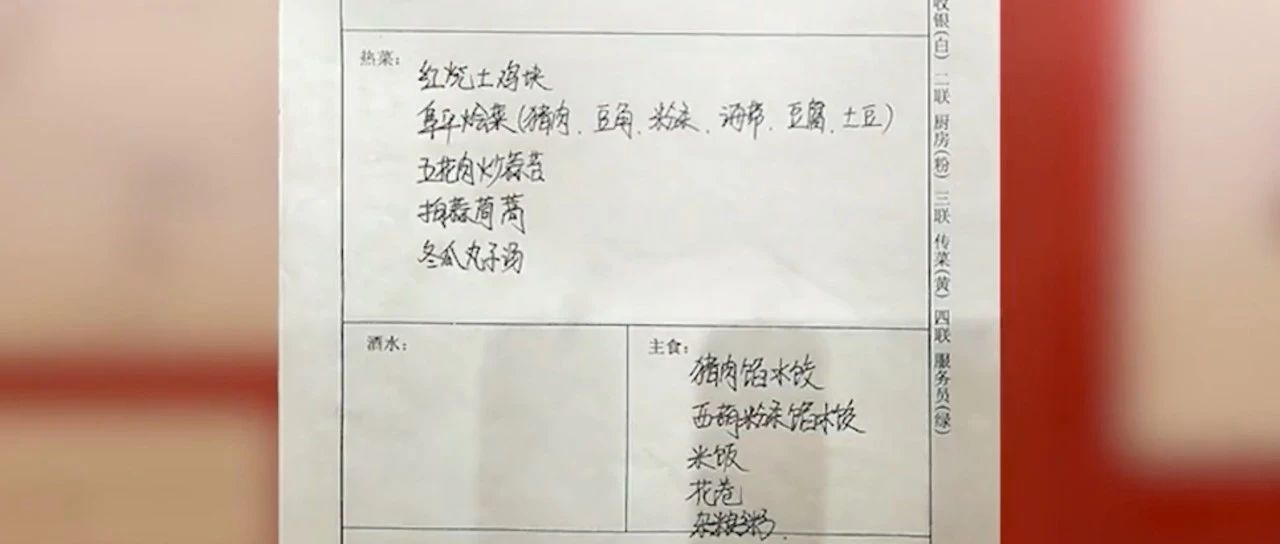 热菜：
红烧土鸡块
阜平烩菜(猪肉、豆角、粉条、海带、豆腐、土豆)
五花肉炒蒜苔
拍蒜茼蒿
冬瓜丸子汤
酒水：
主食：
猪肉馅水饺
西葫粉条馅水饺
米饭
花卷
杂粮粥.
收银(白) 二联 厨房(粉) 三联 传菜(黄) 四联 服务员(绿)